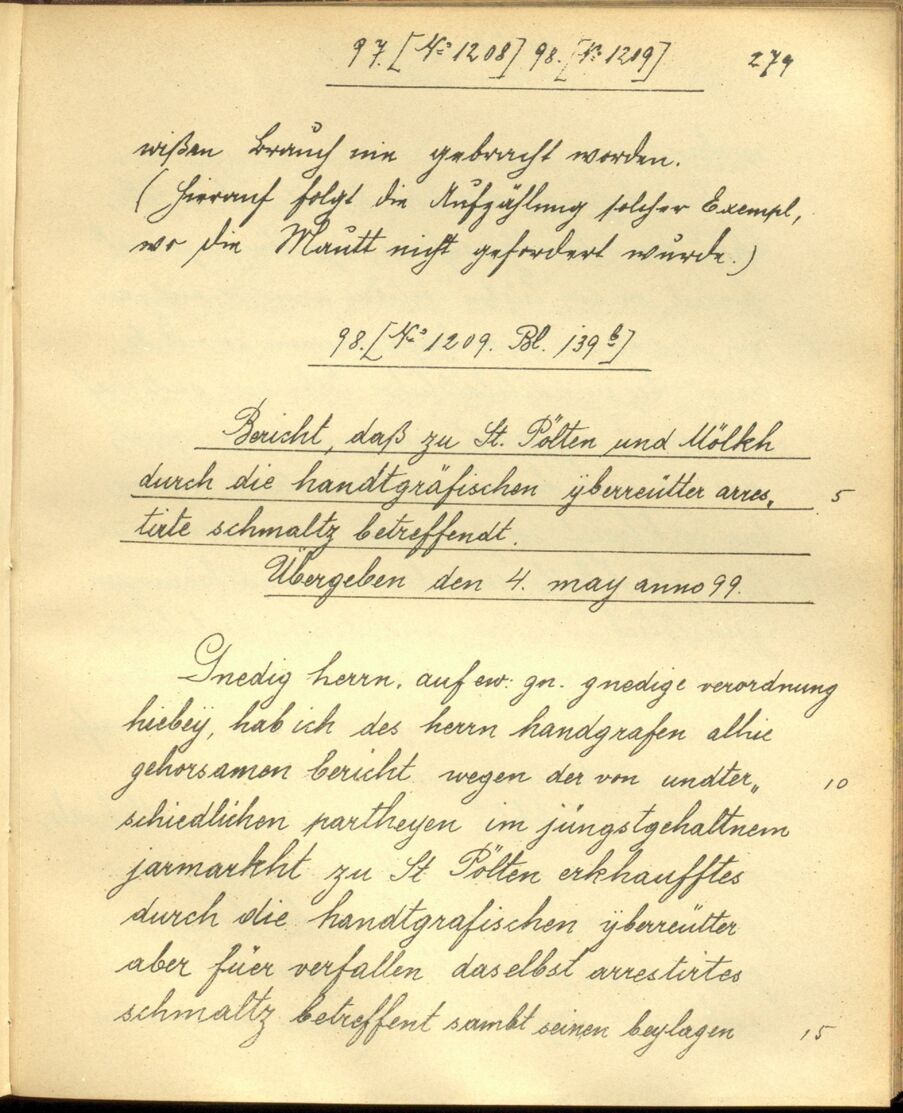 97. [No 1208] 98. [No 1209] 279
wißen brauch nie gebracht worden.
(Hierauf folgt die Aufzählung solcher Exempl,
wo die Mautt nicht gefordert wurde.)
98. [No 1209. Bl. 139b]
Bericht, daß zu St. Pölten und Mölkh
durch die handtgräfischen ÿberreütter arres„ 5
tirte schmaltz betreffendt.
Übergeben den 4. may anno 99.
Gnedig herrn, auf ew: gn. gnedige verordnung
hiebeÿ, hab ich des herrn handgrafen alhie
gehorsamen bericht wegen der von undter„ 10
schiedlichen partheyen im jüngstgehaltnem
jarmarkht zu St Pölten erkhaufftes
durch die handtgrafischen ÿberreütter
aber füer verfallen daselbst arrestirtes
schmaltz betreffent sambt seinen beylagen 15